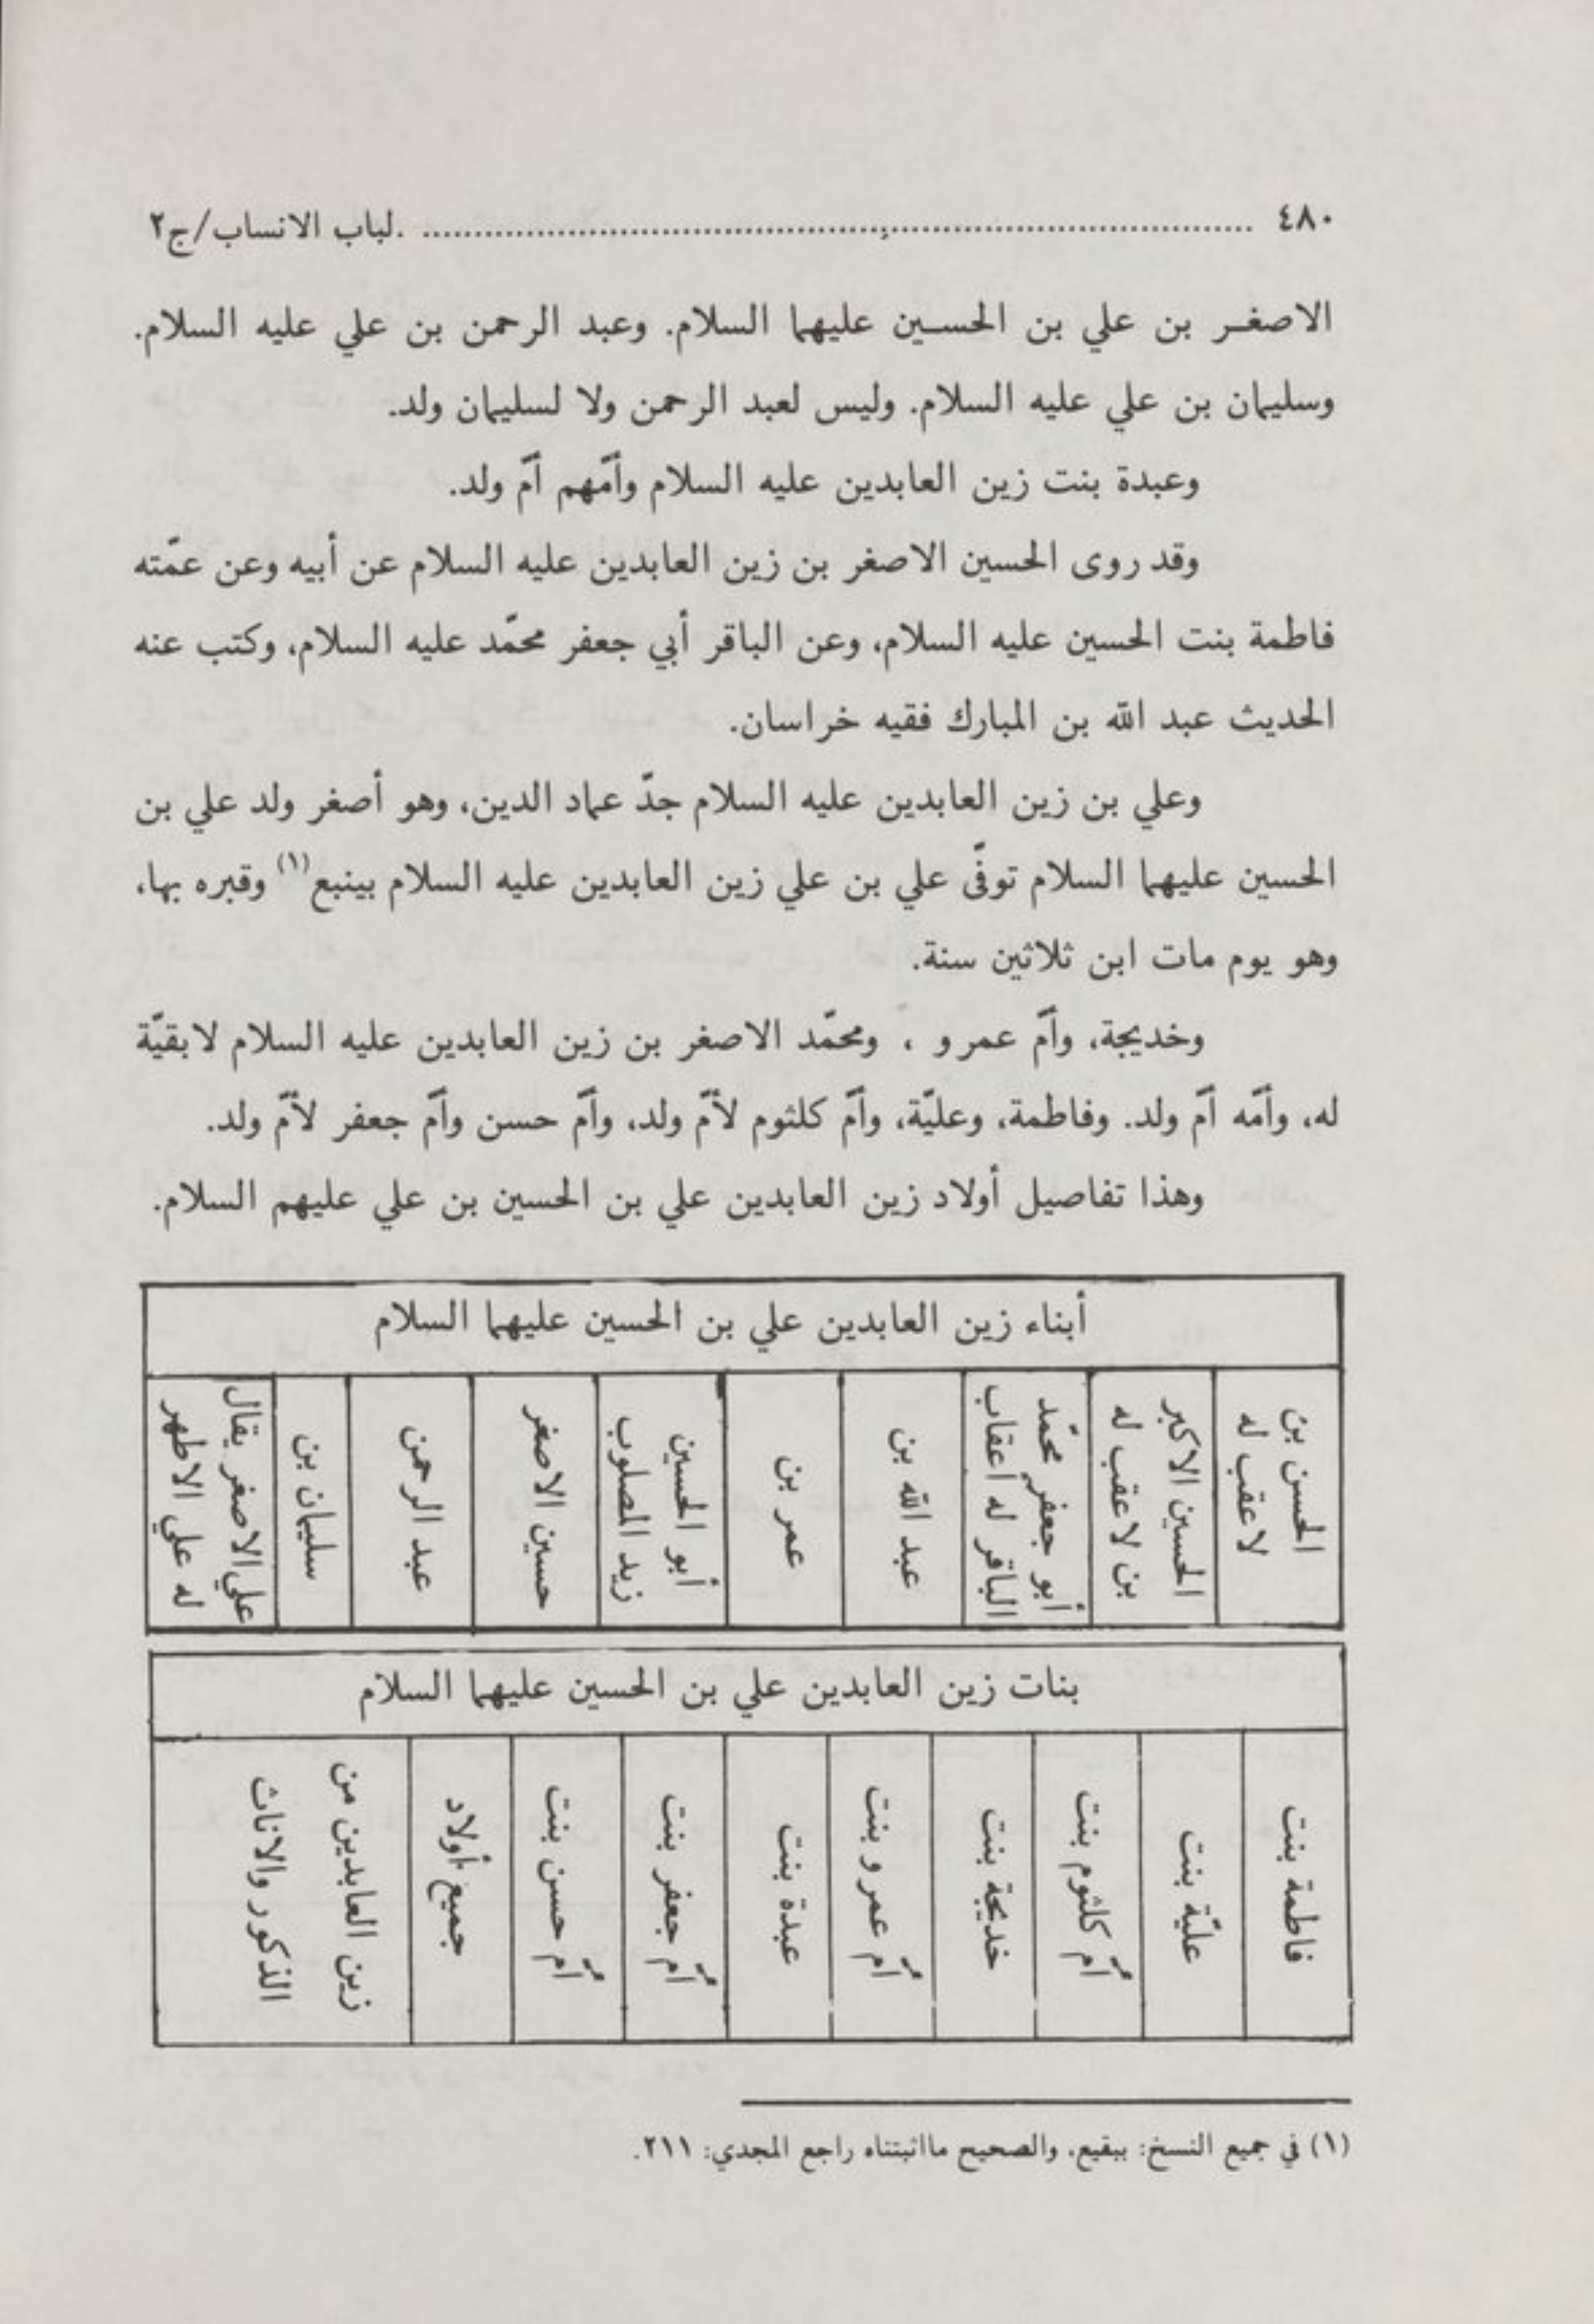 ٤٨٠ ........................................ لباب الانساب/ج٢
الاصغر بن علي بن الحسين عليهما السلام. وعبد الرحمن بن علي عليه السلام.
وسليمان بن علي عليه السلام. وليس لعبد الرحمن ولا لسليمان ولد.
وعبدة بنت زين العابدين عليه السلام وأمّهم أمّ ولد.
وقد روى الحسين الاصغر بن زين العابدين عليه السلام عن أبيه وعن عمّته
فاطمة بنت الحسين عليه السلام، وعن الباقر أبي جعفر محمّد عليه السلام، وكتب عنه
الحديث عبد الله بن المبارك فقيه خراسان.
وعلي بن زين العابدين عليه السلام جدّ عماد الدين، وهو أصغر ولد علي بن
الحسين عليهما السلام توفّى علي بن علي زين العابدين عليه السلام بينبع(١) وقبره بها،
وهو يوم مات ابن ثلاثين سنة.
وخديجة، وأمّ عمرو ، ومحمّد الاصغر بن زين العابدين عليه السلام لابقيّة
له، وأمّه أمّ ولد. وفاطمة، وعليّة، وأمّ كلثوم لأمّ ولد، وأمّ حسن وأمّ جعفر لأمّ ولد.
وهذا تفاصيل أولاد زين العابدين علي بن الحسين بن علي عليهم السلام.
أبناء زين العابدين علي بن الحسين عليهما السلام
الحسن بن
لا عقب له
الحسين الاكبر
بن لا عقب له
أبو جعفر محمّد
الباقر له أعقاب
عبد الله بن
عمر بن
أبو الحسين
زيد المصلوب
حسين الاصغر
عبد الرحمن
سليمان بن
علي الاصغر يقال
له علي الاطهر
بنات زين العابدين علي بن الحسين عليهما السلام
فاطمة بنت
عليّة بنت
أمّ كلثوم بنت
خديجة بنت
أمّ عمرو بنت
عبدة بنت
أمّ جعفر بنت
أمّ حسن بنت
جميع أولاد
زين العابدين من
الذكور والاناث
(١) في جميع النسخ: ببقيع. والصحيح مااثبتناه راجع المجدي: ٢١١.